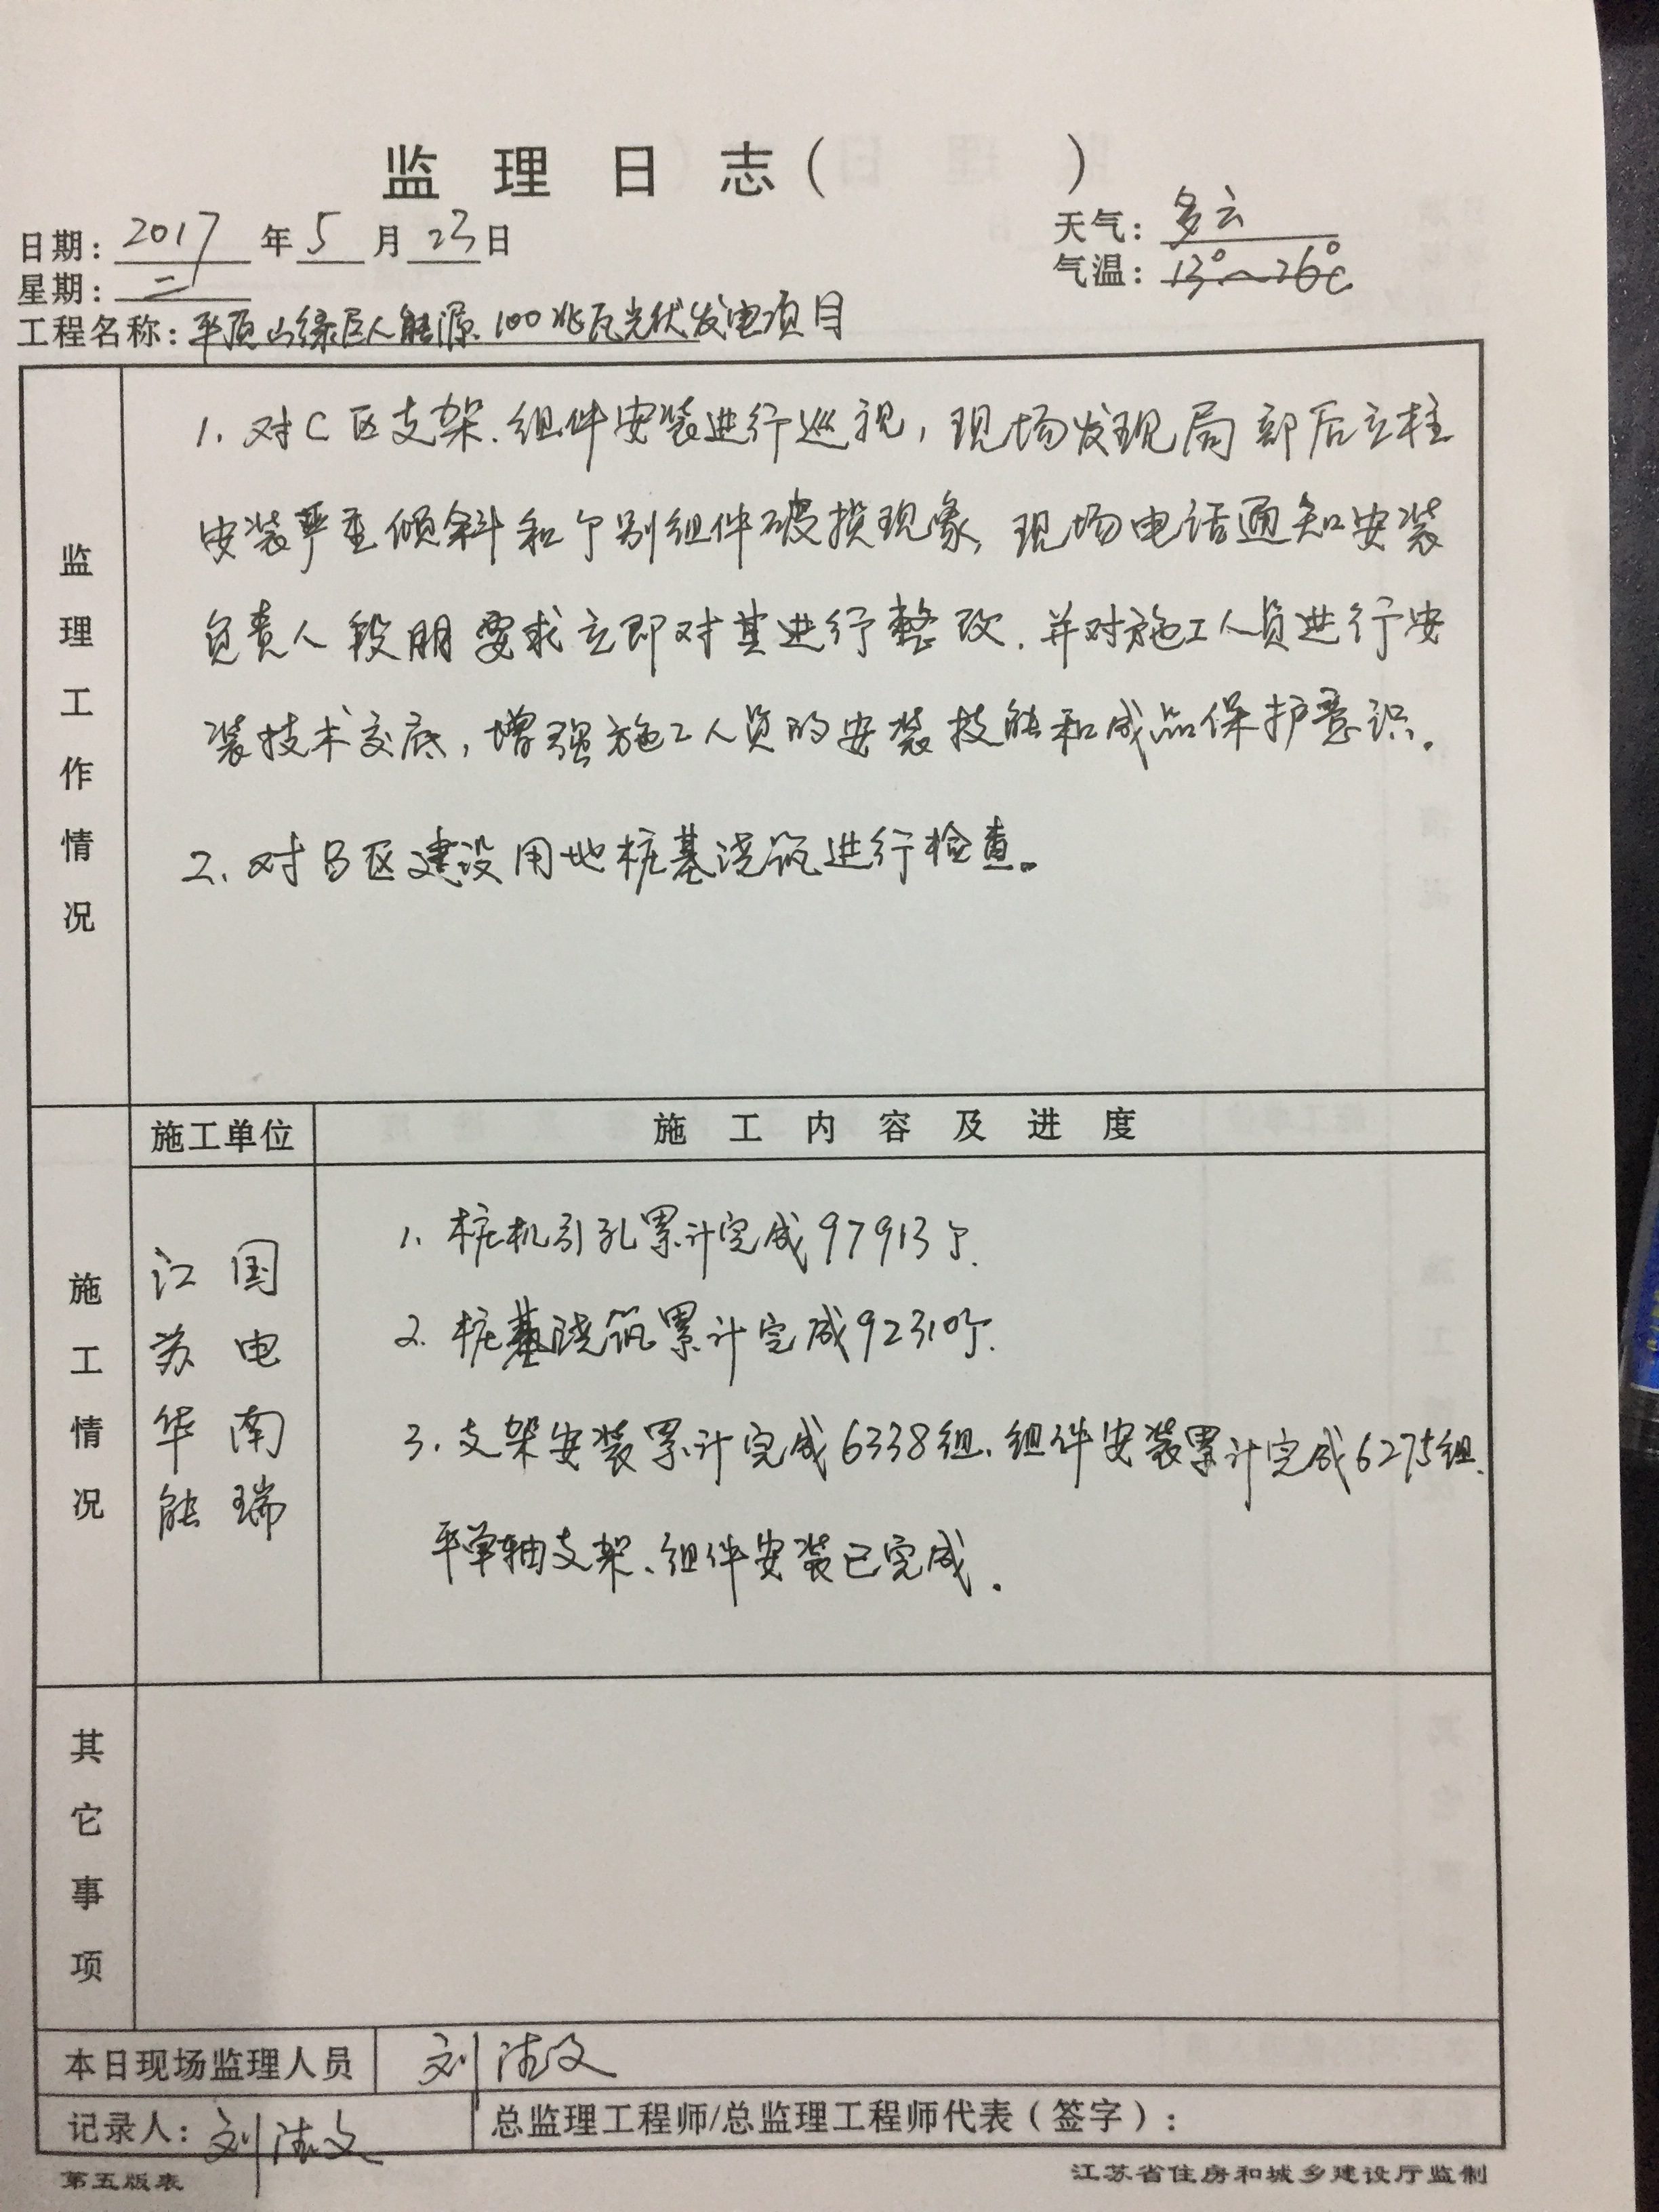 监理日志( )
日期: 2017 年 5 月 23 日
天气: 多云
星期: 二
气温: 13°~26℃
工程名称: 平顶山绿巨人能源100兆瓦光伏发电项目
监理工作情况
1、对C区支架、组件安装进行巡视，现场发现局部后立柱
安装严重倾斜和个别组件破损现象，现场电话通知安装
负责人段朋要求立即对其进行整改，并对施工人员进行安
装技术交底，增强施工人员的安装技能和成品保护意识。
2、对B区建设用地桩基浇筑进行检查。
施工情况
施工单位
施工内容及进度
国电南瑞
江苏华能
1、桩机引孔累计完成97913个.
2、桩基浇筑累计完成92310个.
3、支架安装累计完成6338组、组件安装累计完成6275组.
平单轴支架、组件安装已完成.
其它事项
本日现场监理人员 刘 文
记录人: 刘 文
总监理工程师/总监理工程师代表(签字):
第五版表
江苏省住房和城乡建设厅监制